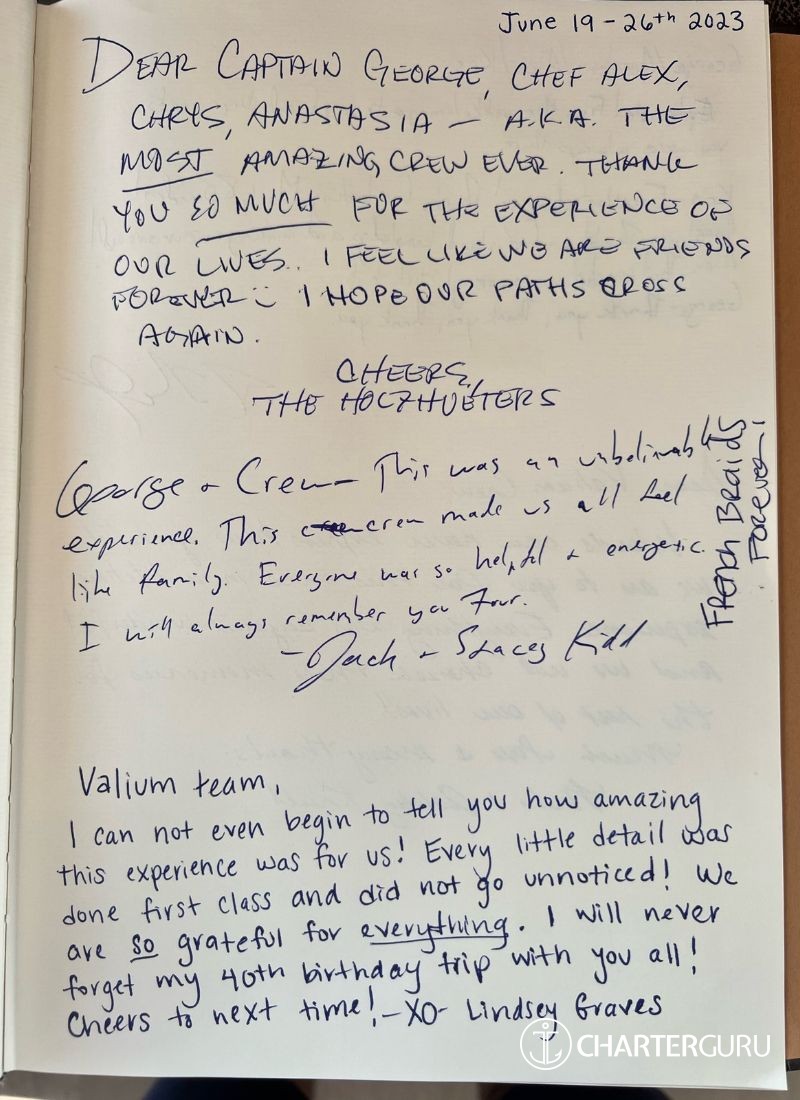 June 19 - 26th 2023
DEAR CAPTAIN GEORGE, CHEF ALEX,
CHRYS, ANASTASIA — A.K.A. THE
MOST AMAZING CREW EVER. THANK
YOU SO MUCH FOR THE EXPERIENCE OF
OUR LIVES. I FEEL LIKE WE ARE FRIENDS
FOREVER :) I HOPE OUR PATHS CROSS
AGAIN.
CHEERS,
THE HOLZHUETERS
George + Crew - This was an unbelivable
experience. This crew made us all feel
like family. Everyone was so helpful + energetic.
I will always remember you four.
- Jack + Stacey Kidd
FRENCH BRAIDS
FOREVER!
Valium team,
I can not even begin to tell you how amazing
this experience was for us! Every little detail was
done first class and did not go unnoticed! We
are so grateful for everything. I will never
forget my 40th birthday trip with you all!
Cheers to next time! -XO- Lindsey Graves
CHARTERGURU